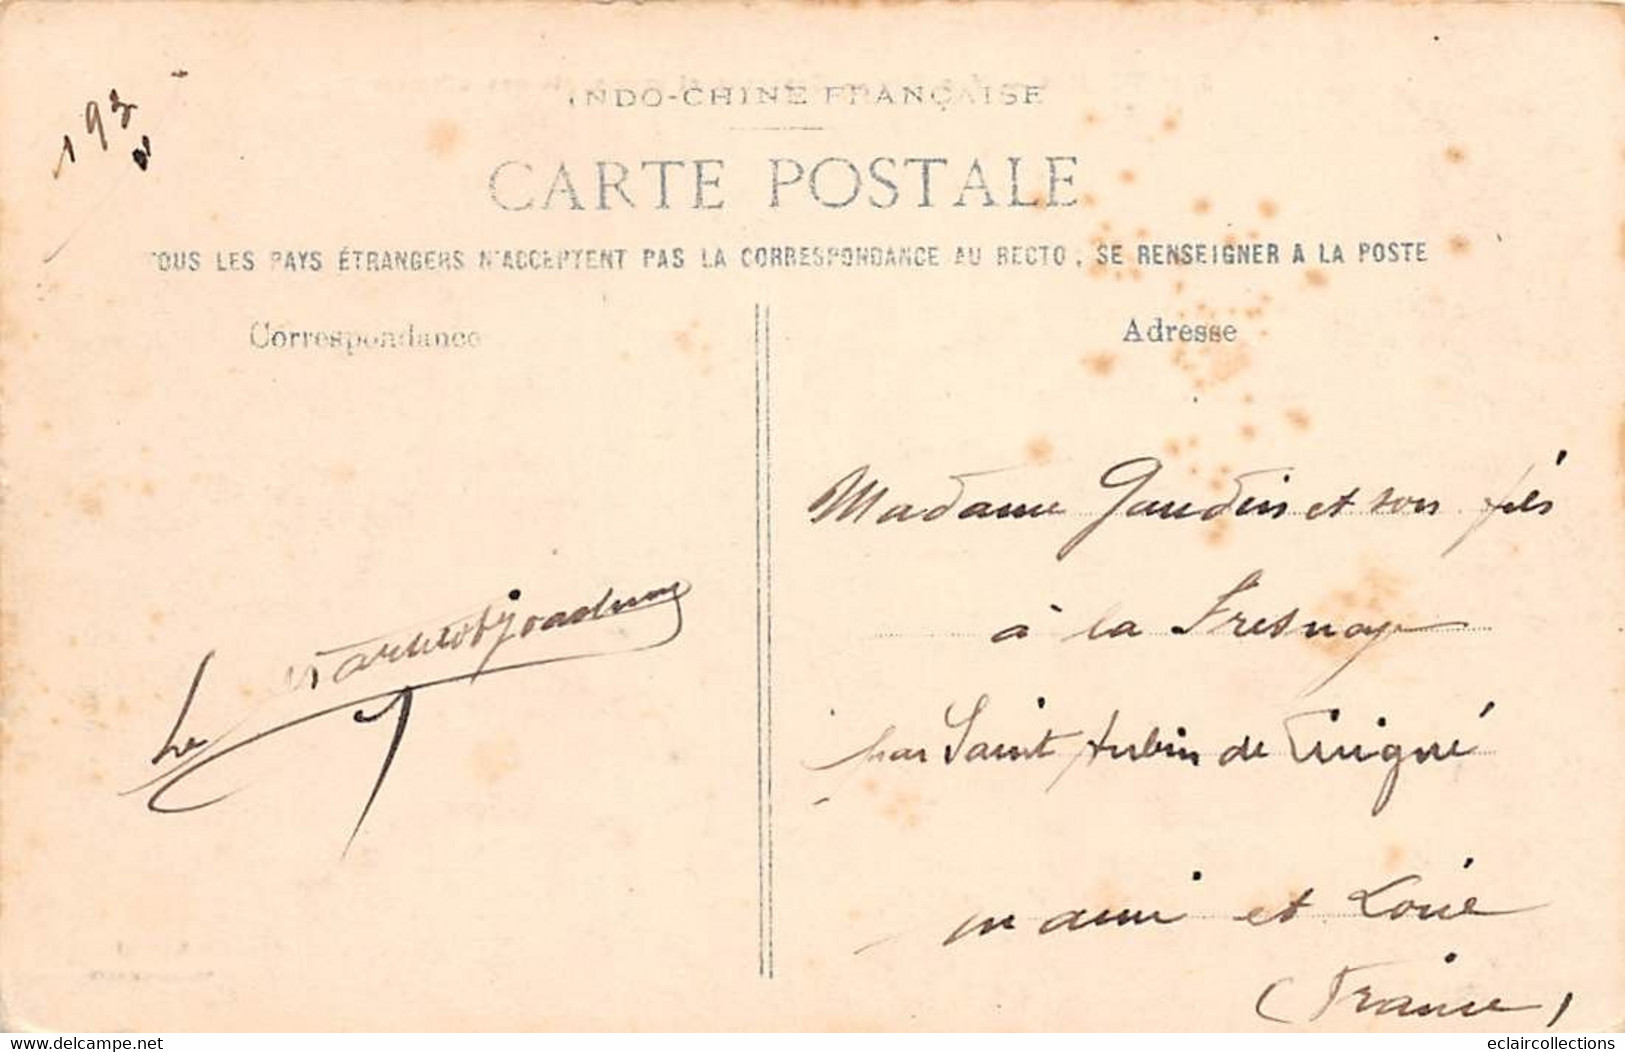 193
INDO-CHINE FRANÇAISE
CARTE POSTALE
TOUS LES PAYS ÉTRANGERS N'ACCEPTENT PAS LA CORRESPONDANCE AU RECTO, SE RENSEIGNER A LA POSTE
Correspondance
Adresse
Madame Gaudin et son fils
à la Fresnay
par Saint Aubin de Luigné
maine et Loire
(France)
Le
eclaircollections